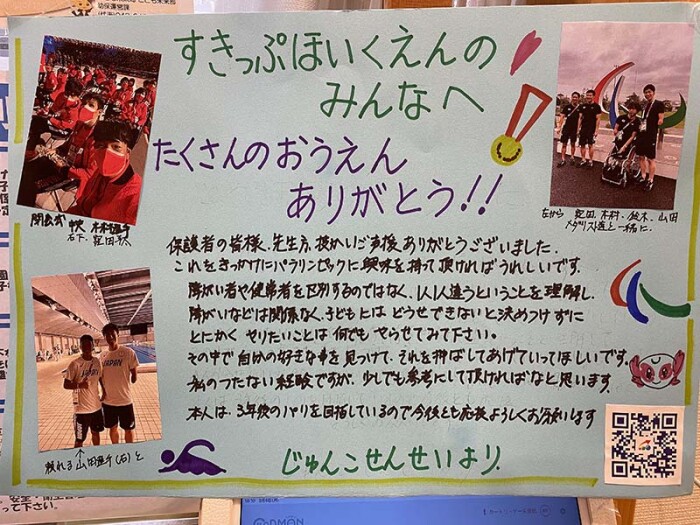 すきっぷほいくえんの
みんなへ
たくさんのおうえん
ありがとう!!
保護者の皆様、先生方、温かいご声援、ありがとうございました。
これをきっかけにパラリンピックに興味を持って頂ければうれしいです。
障がい者や健常者を区別するのではなく、1人1人違うということを理解し、
障がいなどは関係なく、子どもには どうせできないと決めつけずに
とにかく やりたいことは 何でも やらせてみて下さい。
その中で自分の好きな事を見つけて、それを伸ばしてあげていってほしいです。
私のつたない経験ですが、少しでも参考にして頂ければなと思います。
本人は、3年後のパリを目指しているので今後とも応援よろしくお願いします
じゅんこせんせいより。
閉会式 中央 木村選手
右下、窪田
左から 窪田、木村、鈴木、山田
メダリスト達と一緒に。
頼れる山田選手(右)と
JAPAN
JAPAN
って下さい。